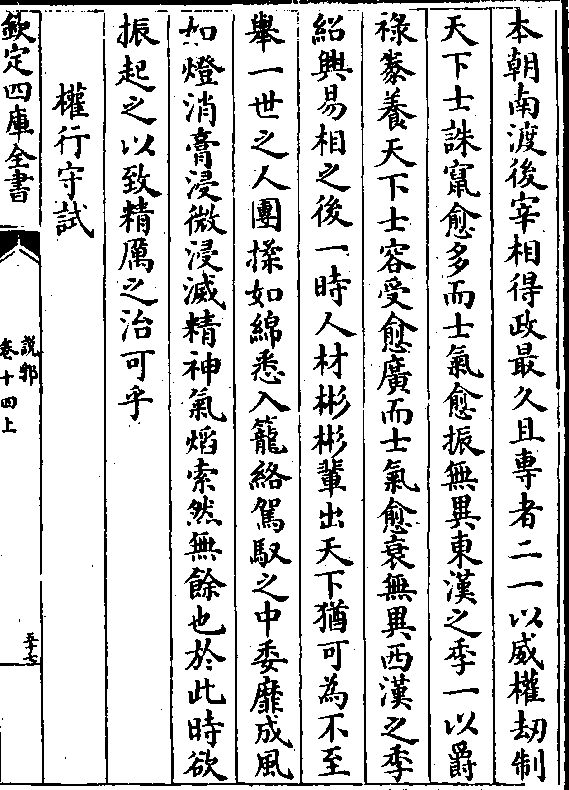 本朝南渡後宰相得政最久且專者二一以威權刼制
天下士誅竄愈多而士氣愈振無異東漢之季一以爵
祿豢養天下士容受愈廣而士氣愈衰無異西漢之季
紹興易相之後一時人材彬彬輩出天下猶可為不至
舉一世之人團揉如綿悉入籠絡駕馭之中委靡成風
如燈消膏浸微浸滅精神氣熖索然無餘也於此時欲
振起之以致精厲之治可乎
權行守試
欽定四庫全書
說郛
卷十四上
五十七